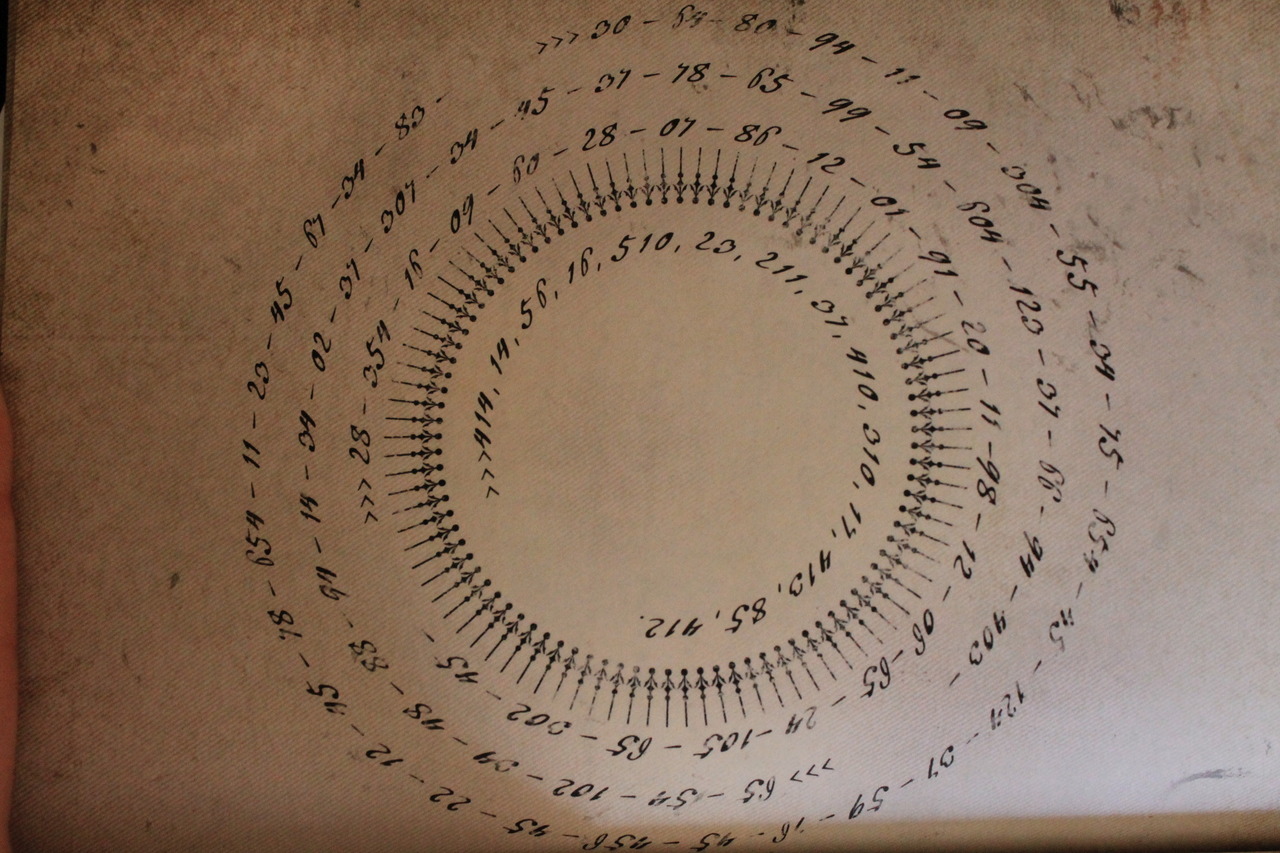 >>> 30 - 64 - 80 - 94 - 11 - 09 - 304 - 55 - 34 - 15 - 654 - 45 - 124 - 37 - 59 - 16 - 45 - 456 - 45 - 22 - 12 - 45 - 78 - 654 - 11 - 23 - 45 - 67 - 34 - 83 -
>>> 65 - 154 - 102 - 34 - 48 - 83 - 94 - 14 - 34 - 02 - 37 - 307 - 34 - 45 - 37 - 78 - 65 - 99 - 54 - 604 - 123 - 37 - 66 - 94 - 403 -
>>> 28 - 354 - 16 - 09 - 60 - 28 - 07 - 86 - 12 - 01 - 91 - 20 - 11 - 98 - 12 - 06 - 65 - 24 - 105 - 65 - 302 - 45 -
>>> 414, 14, 56, 16, 510, 23, 211, 37, 410, 310, 17, 413, 85, 412.